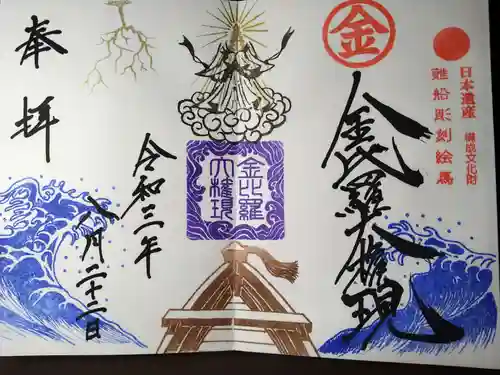 日本遺産
構成文化財
難船彫刻絵馬
金
金比羅大権現
金比羅
大権現
令和三年
八月二十二日
奉拝